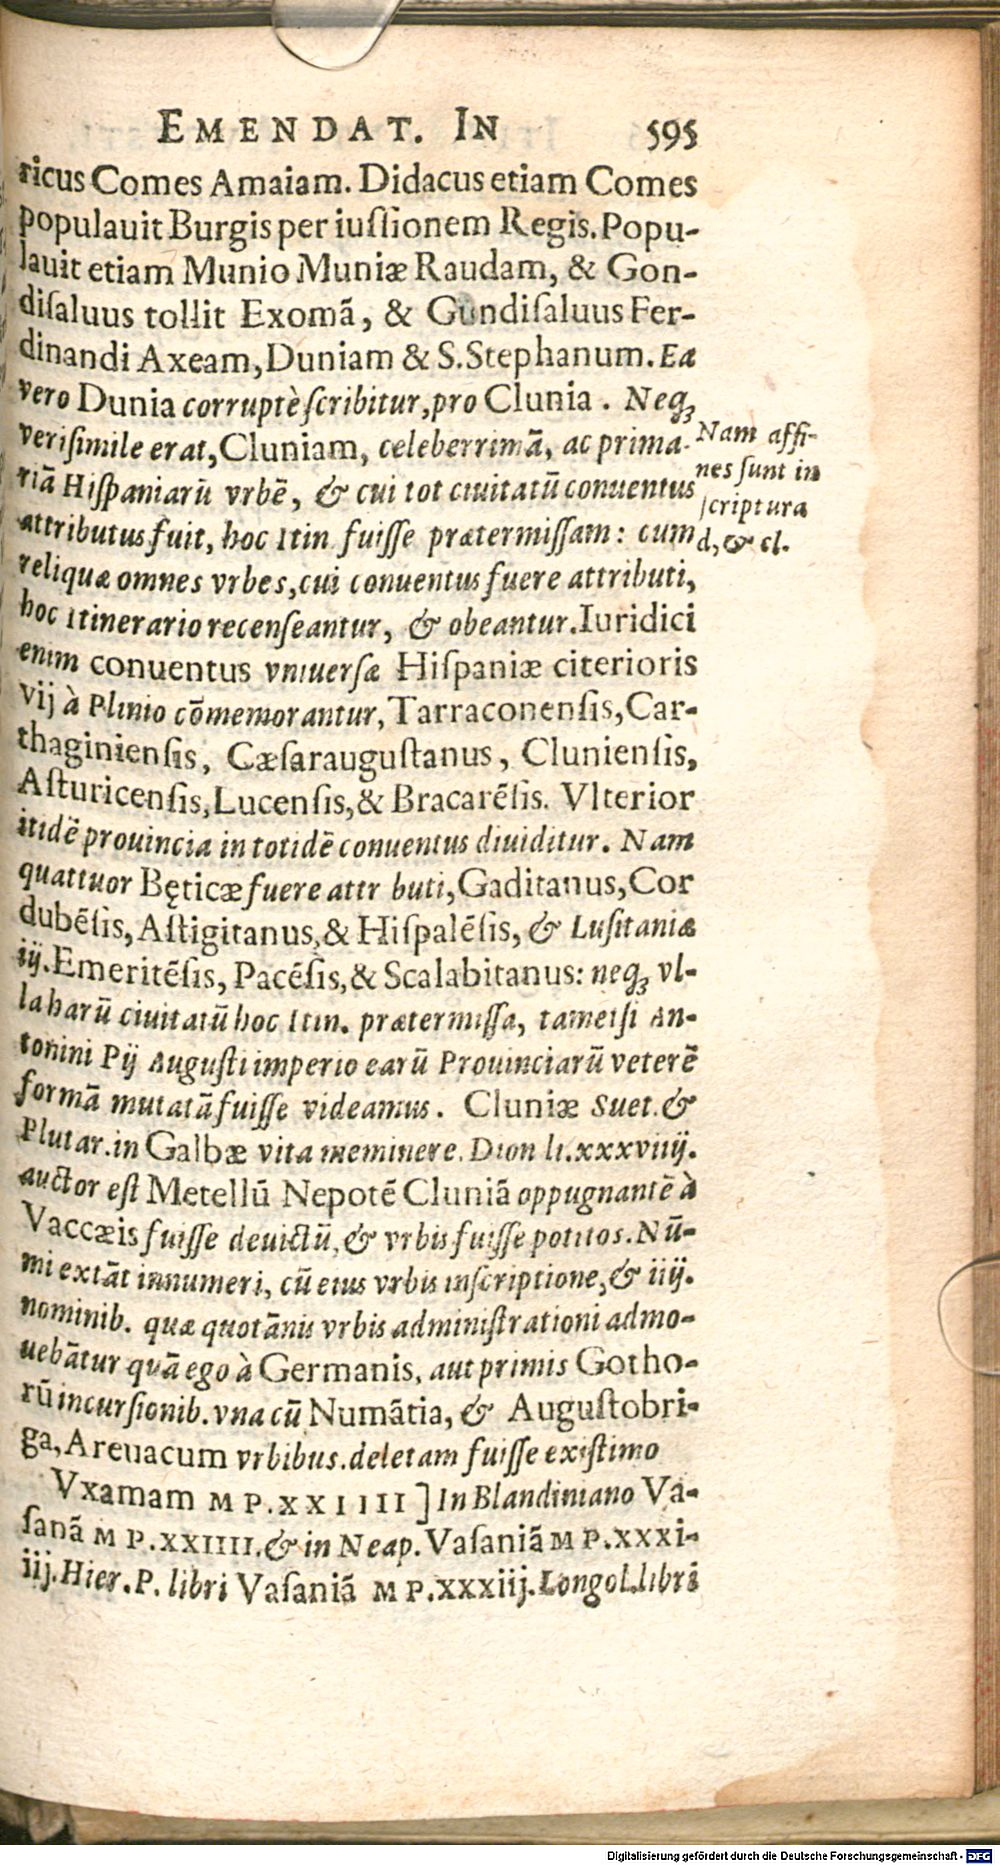 EMENDAT. IN 595
ricus Comes Amaiam. Didacus etiam Comes
populauit Burgis per iuſsionem Regis. Popu-
lauit etiam Munio Muniæ Raudam, & Gon-
diſaluus tollit Exomã, & Gundiſaluus Fer-
dinandi Axeam, Duniam & S. Stephanum. Ea
vero Dunia corruptè ſcribitur, pro Clunia. Neqꝫ
veriſimile erat, Cluniam, celeberrimã, ac prima-
riã Hiſpaniarũ vrbẽ, & cui tot ciuitatũ conuentus
attributus fuit, hoc Itin fuiſſe prætermiſſam: cum
reliquæ omnes vrbes, cui conuentus fuere attributi,
hoc Itinerario recenſeantur, & obeantur. Iuridici
enim conuentus vniuerſæ Hiſpaniæ citerioris
Vij à Plinio cõmemorantur, Tarraconenſis, Car-
thaginienſis, Cæſarauguſtanus, Clunienſis,
Aſturicenſis, Lucenſis, & Bracarẽſis. Vlterior
itidẽ prouincia in totidẽ conuentus diuiditur. Nam
quattuor Bęticæ fuere attr buti, Gaditanus, Cor
dubẽſis, Aſtigitanus, & Hiſpalẽſis, & Luſitaniæ
iij. Emeritẽſis, Pacẽſis, & Scalabitanus: neqꝫ vl-
la harũ ciuitatũ hoc Itin. prætermiſſa, tametſi An-
tonini Pij Auguſti imperio earũ Prouinciarũ veterẽ
formã mutatã fuiſſe videamus. Cluniæ Suet. &
Plutar. in Galbæ vita meminere. Dion li. xxxviiij.
auctor eſt Metellũ Nepotẽ Cluniã oppugnantẽ à
Vaccæis fuiſſe deuictũ, & vrbis fuiſſe potitos. Nũ-
mi extãt innumeri, cũ eius vrbis inſcriptione, & iiij.
nominib. quæ quotãnis vrbis adminiſtrationi admo-
uebãtur quã ego à Germanis, aut primis Gotho-
rũ incurſionib. vna cũ Numãtia, & Auguſtobri-
ga, Areuacum vrbibus. deletam fuiſſe exiſtimo
Vxamam M P. XXIIII ] In Blandiniano Va-
ſanã M P. XXIIII. & in Neap. Vaſaniã M P. XXXI-
iij. Hier. P. libri Vaſaniã M P. xxxiij. Longol. libri
Nam affi-
nes ſunt in
ſcriptura
d, & cl.
Digitalisierung gefördert durch die Deutsche Forschungsgemeinschaft - DFG